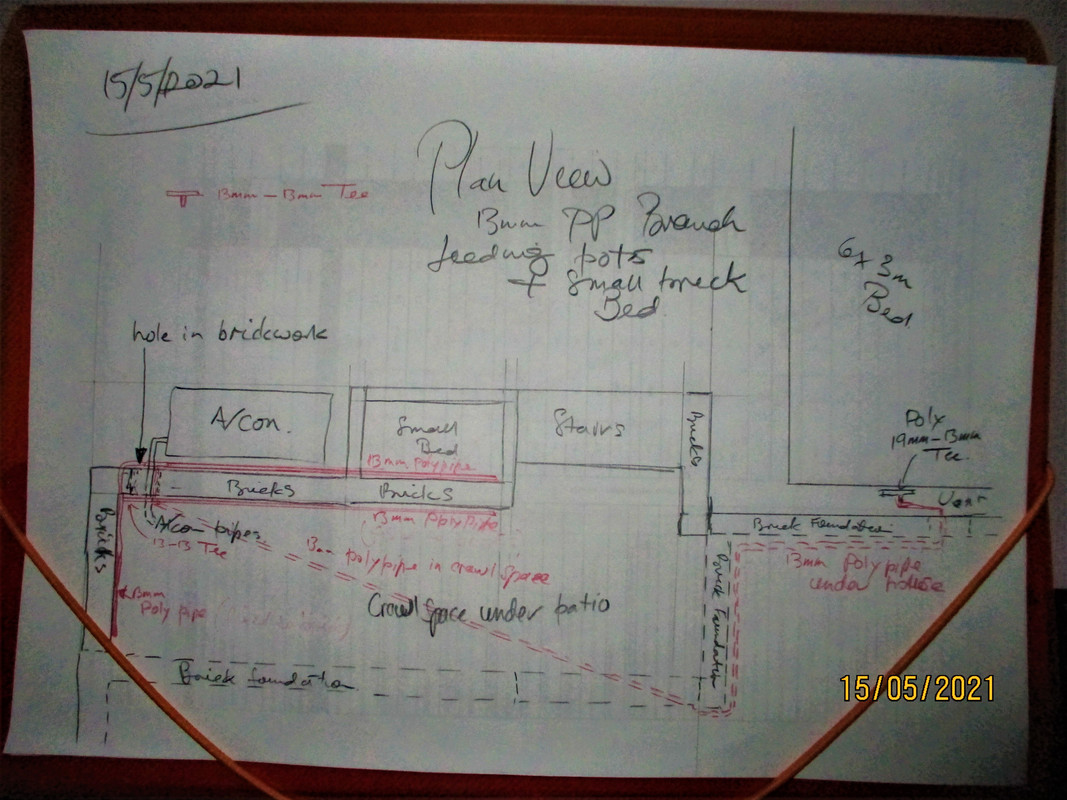 15/5/2021
13mm - 13mm Tee
Plan View
13mm PP Branch
feeding pots
+ Small brick
Bed
6x3m
Bed.
hole in brickwork
A/Con.
Small
Bed
13mm Polypipe
Stairs
Bricks
Poly
19mm-13mm
Tee.
Vent
Bricks
Bricks
13mm Polypipe
Bricks
A/con pipes.
13-13 Tee
Brick Foundation
13mm polypipe in crawl space
13mm Poly pipe
under house
13mm
Poly pipe
Crawl Space under patio
Brick Foundation
Brick foundation
15/05/2021